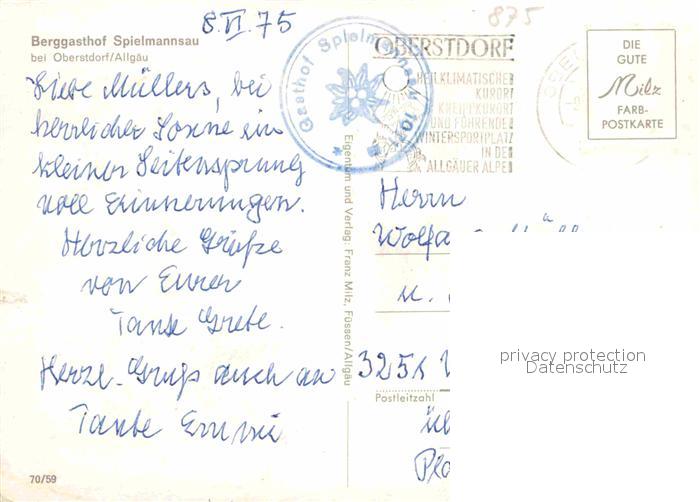 8.VI.75
875
Berggasthof Spielmannsau
bei Oberstdorf/Allgäu
Liebe Müllers, bei
herrlicher Sonne ein
kleiner Seitensprung
voll Erinnerungen.
Herzliche Grüße
von Eurer
Tante Grete.
Herzl. Gruß auch an
Tante Emmi
70/59
Gasthof Spielmannsau
OBERSTDORF
HEILKLIMATISCHER
KURORT
KNEIPPKURORT
UND FÜHRENDER
WINTERSPORTPLATZ
IN DEN
ALLGÄUER ALPEN
DIE
GUTE
Milz
FARB-
POSTKARTE
Eigentum und Verlag: Franz Milz, Füssen/Allgäu
Herrn
Wolfg
u.
3251
Postleitzahl
privacy protection
Datenschutz